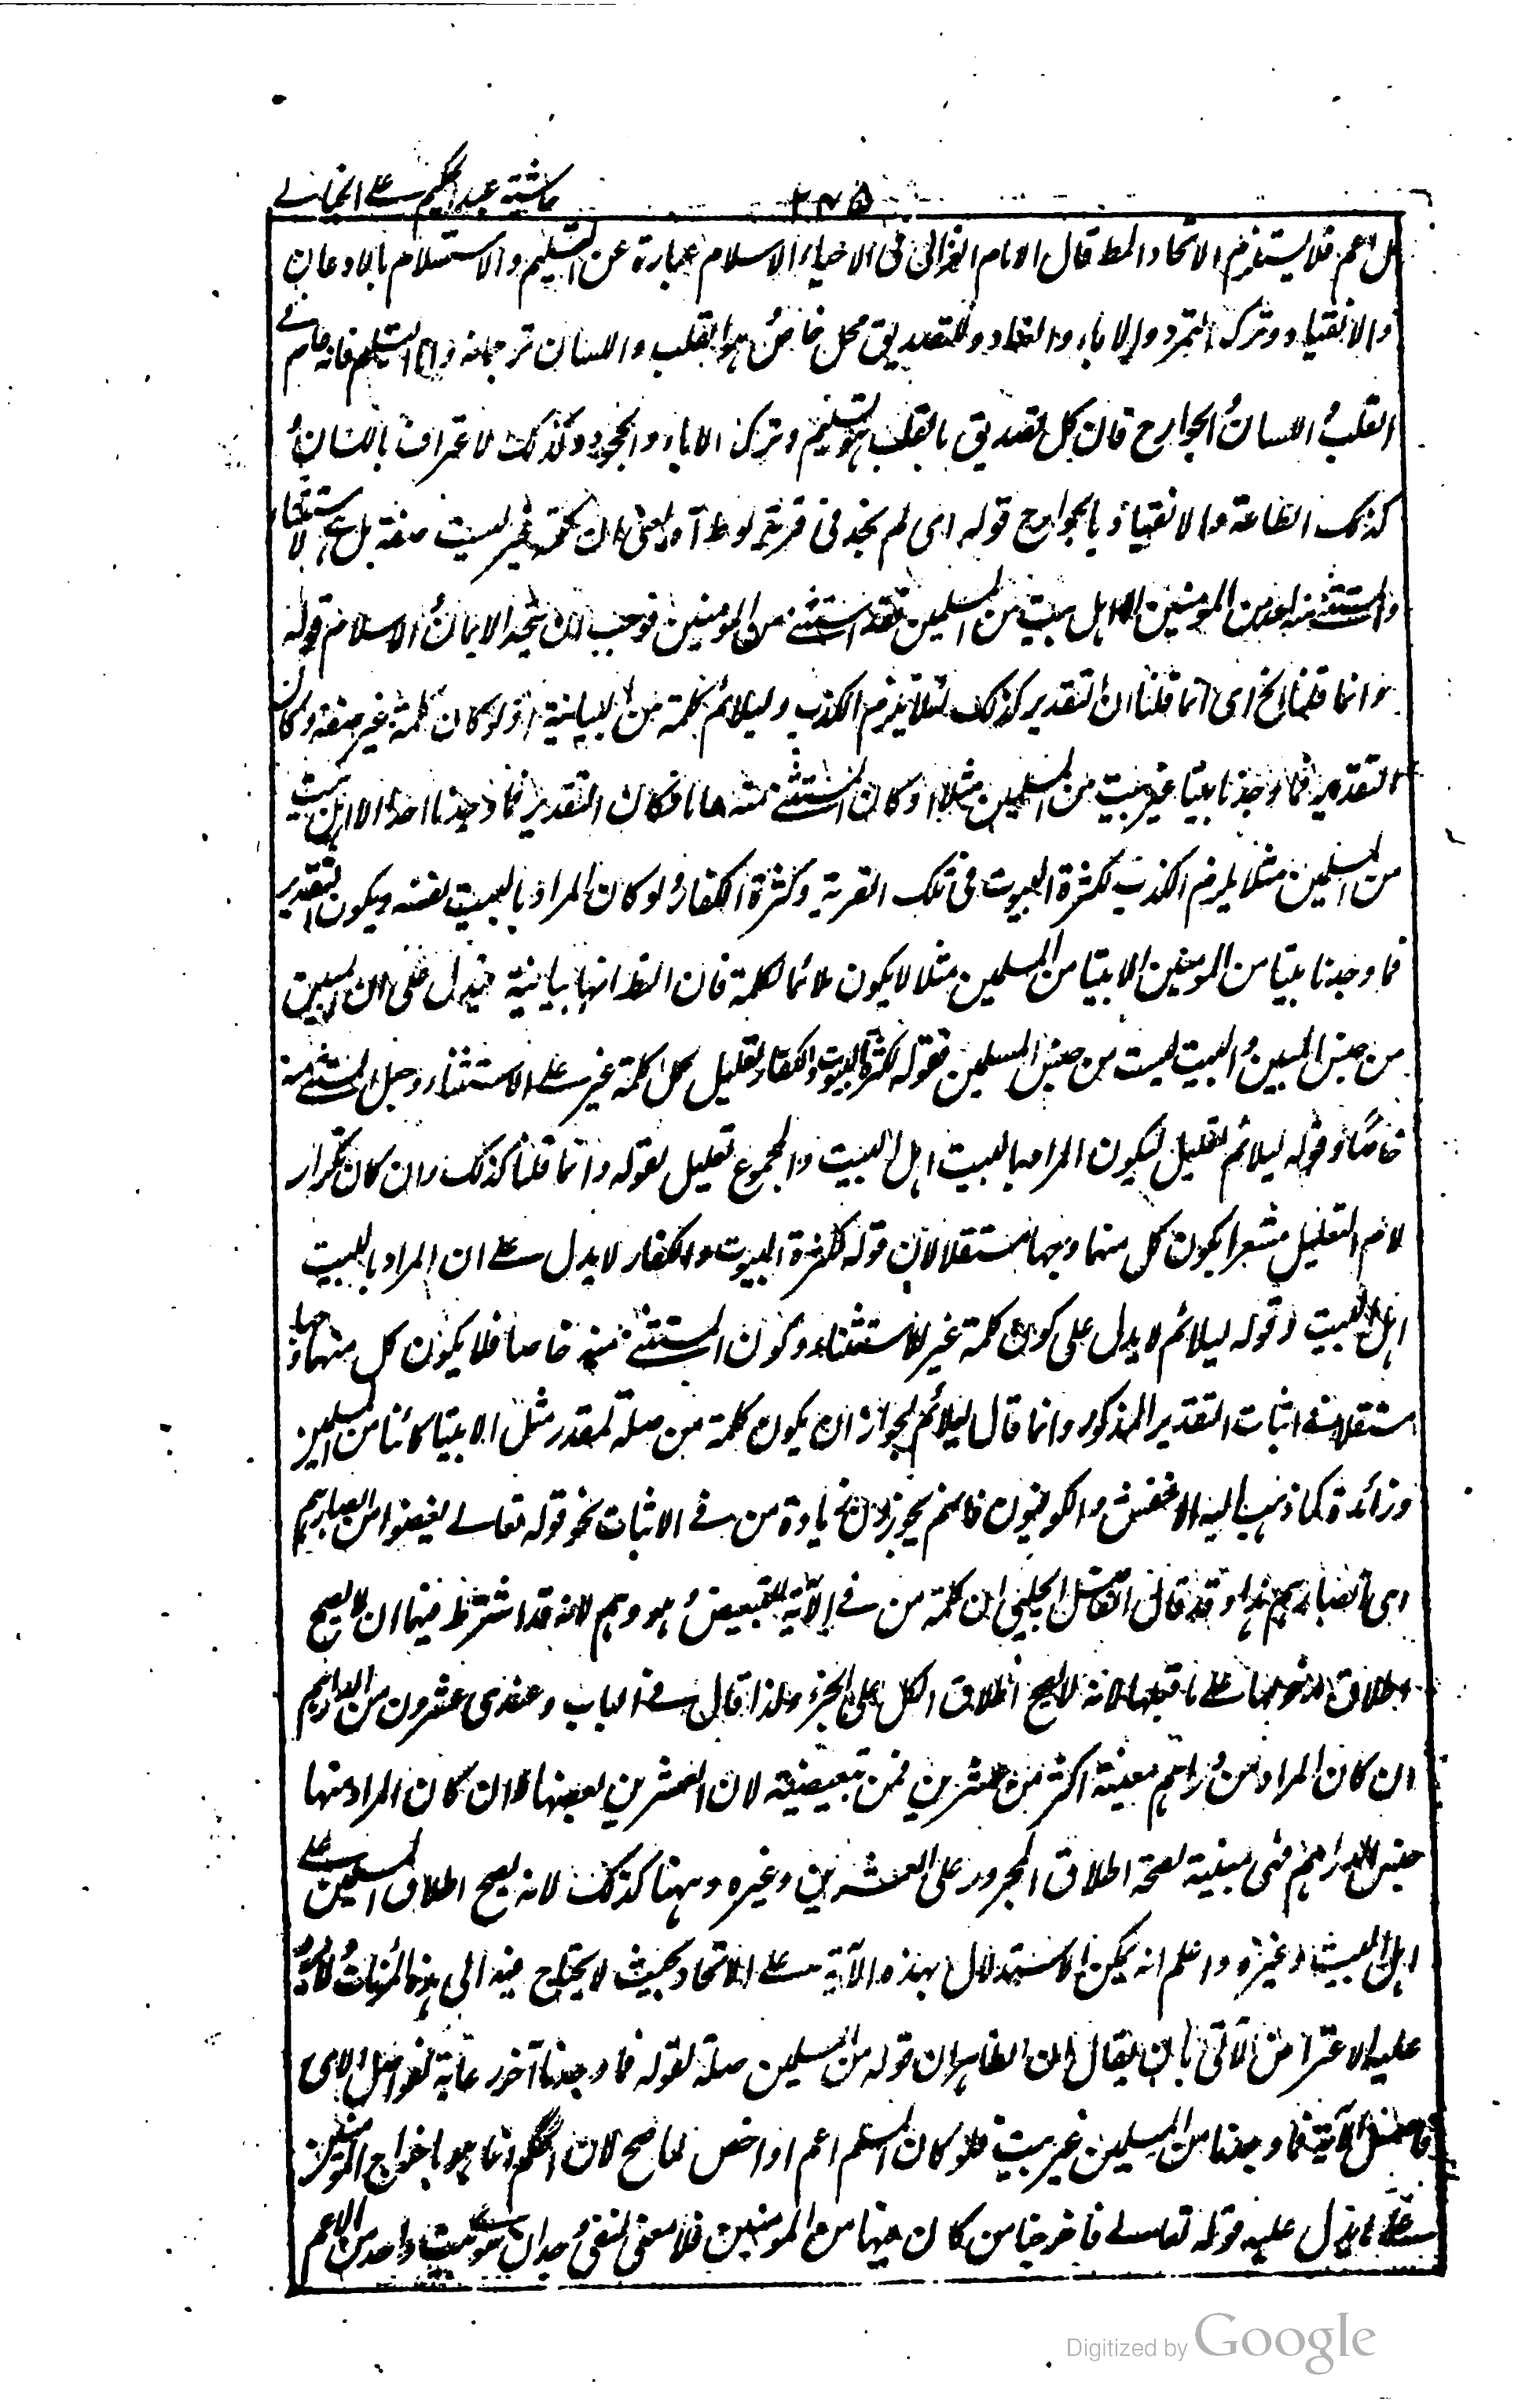 حاشیة عبد الحکیم علی الخیالے
۲۴۵
بل اعم فلا یستلزم الاتحاد المط قال الامام الغزالی فی الاحیاء الاسلام عبارة عن التسلیم والاستسلام بالاذعان
والانقیاد وترک التمرد والاباء والعناد وللتصدیق محل خاص وہو القلب واللسان ترجمانه واما التسلیم فانه عام فے
القلب واللسان والجوارح فان کل تصدیق بالقلب ہو تسلیم وترک الاباء والجحود وکذلک الاعتراف باللسان و
کذلک الطاعة والانقیاد بالجوارح قوله ای لم نجد فی قریة لوط آه یعنی ان کلمة غیر لیست صفة بل ہی لاستثناء
والمستثنے منه احد من المومنین الا اہل بیت من المسلمین فقد استثنے من المومنین فوجب ان یتحد الایمان والاسلام قوله
وانما قلنا الخ ای انما قلنا ان التقدیر کذلک لئلا یلزم الکذب ولیلائم کلمة من البیانیة اذ لو کان کلمة غیر صفة وکان
التقدیر فما وجدنا بیتا غیر بیت من المسلمین مثلا او کان المستثنے منه عاما فکان التقدیر فما وجدنا احدا الا اہل بیت
من المسلمین مثلا یلزم الکذب لکثرة البیوت فی تلک القریة وکثرة الکفار ولو کان المراد بالبیت نفسه ویکون التقدیر
فما وجدنا بیتا من المومنین الا بیتا من المسلمین مثلا لا یکون ملائما لکلمة فان الظ انها بیانیة فیدل علی ان المبین
من جنس المبین والبیت لیست من جنس المسلمین فقوله لکثرة البیوت والکفار تعلیل لحمل کلمة غیر علے الاستثناء وجعل المستثنے منه
خاصا وقوله لیلائم تعلیل لیکون المراد بالبیت اہل البیت والمجموع تعلیل لقوله وانما قلنا کذلک وان کان تکرار
لام التعلیل مشعرا بکون کل منهما وجها مستقلا لان قوله لکثرة البیوت والکفار لا یدل علے ان المراد بالبیت
اہل البیت وقوله لیلائم لا یدل علی کون کلمة غیر للاستثناء وکون المستثنے منه خاصا فلا یکون کل منهما وجها
مستقلا فے اثبات التقدیر المذکور وانما قال لیلائم لجواز ان یکون کلمة من صلة لمقدر مثل الا بیتا کائنا من المسلمین
وزائدة کما ذہب الیه الاخفش والکوفیون فانهم یجوزون زیادة من فے الاثبات نحو قوله تعالے یغضوا من ابصارہم
ای ابصارہم ہذا وقد قال الفاضل الجلبی ان کلمة من فے الآیة للتبعیض وہو وہم لانه قد اشترط فیها ان لا یصح
اطلاق مدخولها علے ما قبلها لانه لا یصح اطلاق الکل علی الجزء ولذا قال فے اللباب وعندی عشرون من الدراہم
ان کان المراد من دراہم معینة اکثر من عشرین فمن تبعیضیة لان العشرین بعضها وان کان المراد منها
جنس الدراہم فهی مبینة لصحة اطلاق المجرور علی العشرین وغیره وہهنا کذلک لانه یصح اطلاق المسلمین علے
اہل البیت وغیره واعلم انه یمکن الاستدلال بهذه الآیة علے الاتحاد بحیث لا یحتاج فیه الی ہذه
علیه الاعتراض الآتی بان یقال ان الظاہر ان قوله من المسلمین صلة لقوله فما وجدنا آخر رعایة لفواصل الآی
فاصل الآیة فما وجدنا من المسلمین غیر بیت فلو کان المسلم اعم او اخص لما صح لان الحکم انما ہو باخراج المومنین
علے ما یدل علیه قوله تعالے فاخرجنا من کان فیها من المومنین فلا معنی لنفی وجدان سوے بیت واحد من الاعم